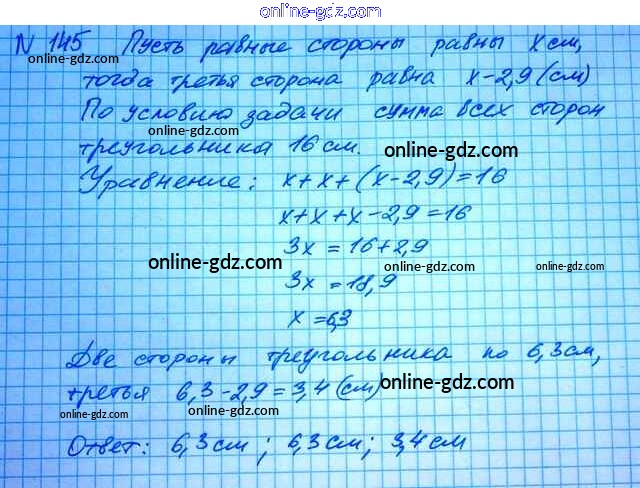 online-gdz.com
N 145 Пусть равные стороны равны x см,
online-gdz.com
online-gdz.com
тогда третья сторона равна x-2,9 (см)
По условию задачи сумма всех сторон
online-gdz.com
online-gdz.com
треугольника 16 см. online-gdz.com
Уравнение: x+x+(x-2,9)=16
x+x+x-2,9=16
3x = 16+2,9
online-gdz.com
online-gdz.com
online-gdz.com
3x = 18,9
x = 6,3
Две стороны треугольника по 6,3 см,
третья 6,3-2,9=3,4 (см)
online-gdz.com
online-gdz.com
online-gdz.com
Ответ: 6,3 см; 6,3 см; 3,4 см